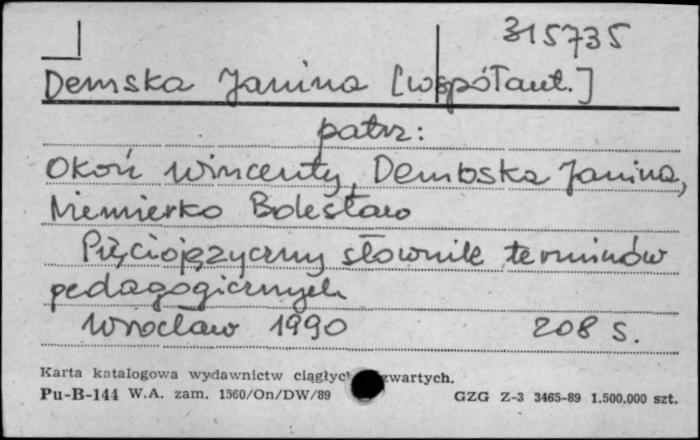 315735
Demska Janina [współaut.]
patrz:
Okoń Wincenty, Dembska Janina,
Niemierko Bolesław
Pięciojęzyczny słownik terminów
pedagogicznych
Wrocław 1990 208 s.
Karta katalogowa wydawnictw ciągłyc zwartych.
Pu-B-144 W.A. zam. 1560/On/DW/89 GZG Z-3 3465-89 1.500.000 szt.